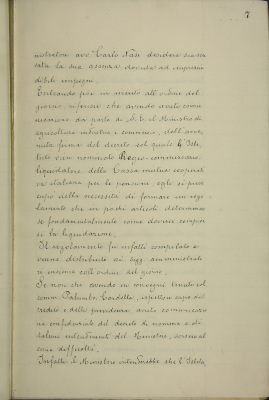 7
nistratore avv. Carlo Nasi desidera sia scu
sata la sua assenza dovuta ad impreve
dibili impegni.
Entrando poi in merito all'ordine del
giorno, riferisce che avendo avuto comu
nicazione da parte di S. E. il Ministro di
agricoltura industria e commercio, dell'avve
nuta firma del decreto col quale l'Isti
tuto era nominato Regio commissario
liquidatore della Cassa mutua coopera
tiva italiana per le pensioni, egli si preoc
cupò della necessità di formare un rego
lamento che in pochi articoli determinas
se fondamentalmente come doveva compier
si la liquidazione.
Il regolamento fu infatti compilato e
venne distribuito ai sigg. amministrato
ri insieme coll'ordine del giorno.
Se non che avendo in convegni tenuti col
comm. Palumbo Cardella, ispettore capo del
credito e della previdenza avuta comunicazio
ne confidenziale del decreto di nomina e di
del Ministro,
cune difficoltà.
Infatti il Ministero intenderebbe che l'Istituto